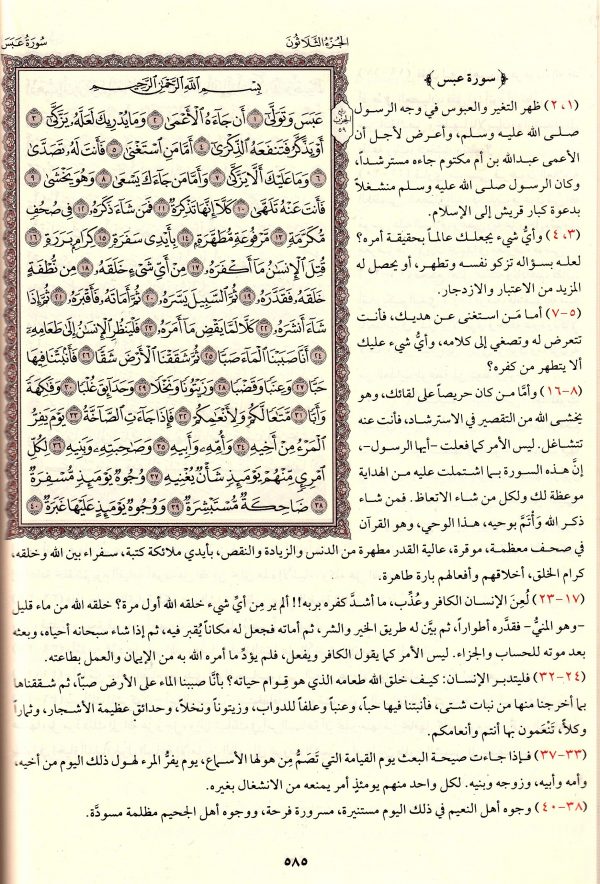 سُورَةُ عَبَسَ
الجُزْءُ الثَّلَاثُونَ
بِسْمِ اللَّهِ الرَّحْمَٰنِ الرَّحِيمِ
عَبَسَ وَتَوَلَّىٰ ١ أَن جَاءَهُ الْأَعْمَىٰ ٢ وَمَا يُدْرِيكَ لَعَلَّهُ يَزَّكَّىٰ ٣
أَوْ يَذَّكَّرُ فَتَنفَعَهُ الذِّكْرَىٰ ٤ أَمَّا مَنِ اسْتَغْنَىٰ ٥ فَأَنتَ لَهُ تَصَدَّىٰ
٦ وَمَا عَلَيْكَ أَلَّا يَزَّكَّىٰ ٧ وَأَمَّا مَن جَاءَكَ يَسْعَىٰ ٨ وَهُوَ يَخْشَىٰ ٩
فَأَنتَ عَنْهُ تَلَهَّىٰ ١٠ كَلَّا إِنَّهَا تَذْكِرَةٌ ١١ فَمَن شَاءَ ذَكَرَهُ ١٢ فِي صُحُفٍ
مُّكَرَّمَةٍ ١٣ مَّرْفُوعَةٍ مُّطَهَّرَةٍ ١٤ بِأَيْدِي سَفَرَةٍ ١٥ كِرَامٍ بَرَرَةٍ ١٦
قُتِلَ الْإِنسَانُ مَا أَكْفَرَهُ ١٧ مِنْ أَيِّ شَيْءٍ خَلَقَهُ ١٨ مِن نُّطْفَةٍ
خَلَقَهُ فَقَدَّرَهُ ١٩ ثُمَّ السَّبِيلَ يَسَّرَهُ ٢٠ ثُمَّ أَمَاتَهُ فَأَقْبَرَهُ ٢١ ثُمَّ إِذَا
شَاءَ أَنشَرَهُ ٢٢ كَلَّا لَمَّا يَقْضِ مَا أَمَرَهُ ٢٣ فَلْيَنظُرِ الْإِنسَانُ إِلَىٰ طَعَامِهِ
٢٤ أَنَّا صَبَبْنَا الْمَاءَ صَبًّا ٢٥ ثُمَّ شَقَقْنَا الْأَرْضَ شَقًّا ٢٦ فَأَنبَتْنَا فِيهَا
حَبًّا ٢٧ وَعِنَبًا وَقَضْبًا ٢٨ وَزَيْتُونًا وَنَخْلًا ٢٩ وَحَدَائِقَ غُلْبًا ٣٠ وَفَاكِهَةً
وَأَبًّا ٣١ مَّتَاعًا لَّكُمْ وَلِأَنْعَامِكُمْ ٣٢ فَإِذَا جَاءَتِ الصَّاخَّةُ ٣٣ يَوْمَ يَفِرُّ
الْمَرْءُ مِنْ أَخِيهِ ٣٤ وَأُمِّهِ وَأَبِيهِ ٣٥ وَصَاحِبَتِهِ وَبَنِيهِ ٣٦ لِكُلِّ
امْرِئٍ مِّنْهُمْ يَوْمَئِذٍ شَأْنٌ يُغْنِيهِ ٣٧ وُجُوهٌ يَوْمَئِذٍ مُّسْفِرَةٌ
٣٨ ضَاحِكَةٌ مُّسْتَبْشِرَةٌ ٣٩ وَوُجُوهٌ يَوْمَئِذٍ عَلَيْهَا غَبَرَةٌ ٤٠
﴿ سورة عبس ﴾
(١،٢) ظهر التغير والعبوس في وجه الرسول
صلى الله عليه وسلم، وأعرض لأجل أن
الأعمى عبدالله بن أم مكتوم جاءه مسترشداً،
وكان الرسول صلى الله عليه وسلم منشغلاً
بدعوة كبار قريش إلى الإسلام.
(٣،٤) وأيُّ شيء يجعلك عالماً بحقيقة أمره؟
لعله بسؤاله تزكو نفسه وتطهر، أو يحصل له
المزيد من الاعتبار والازدجار.
(٥-٧) أما مَن استغنى عن هديك، فأنت
تتعرض له وتصغي إلى كلامه، وأيُّ شيء عليك
ألا يتطهر من كفره؟
(٨-١٦) وأمَّا من كان حريصاً على لقائك، وهو
يخشى الله من التقصير في الاسترشاد، فأنت عنه
تتشاغل. ليس الأمر كما فعلت -أيها الرسول-،
إنَّ هذه السورة بما اشتملت عليه من الهداية
موعظة لك ولكل من شاء الاتعاظ. فمن شاء
ذكر الله وَأْتَمَّ بوحيه، هذا الوحي، وهو القرآن
في صحف معظمة، موقرة، عالية القدر مطهرة من الدنس والزيادة والنقص، بأيدي ملائكة كتبة، سفراء بين الله وخلقه،
كرام الخلق، أخلاقهم وأفعالهم بارة طاهرة.
(١٧-٢٣) لُعِنَ الإنسان الكافر وعُذِّب، ما أشدَّ كفره بربه!! ألم ير مِن أيِّ شيء خلقه الله أول مرة؟ خلقه الله من ماء قليل
-وهو المنيُّ- فقدَّره أطواراً، ثم بيَّن له طريق الخير والشر، ثم أماته فجعل له مكاناً يُقبر فيه، ثم إذا شاء سبحانه أحياه، وبعثه
بعد موته للحساب والجزاء. ليس الأمر كما يقول الكافر ويفعل، فلم يؤدِّ ما أمره الله به من الإيمان والعمل بطاعته.
(٢٤-٣٢) فليتدبر الإنسان: كيف خلق الله طعامه الذي هو قِوام حياته؟ بأنَّا صببنا الماء على الأرض صبّاً، ثم شققناها
بما أخرجنا منها من نبات شتى، فأنبتنا فيها حباً، وعنباً وعلفاً للدواب، وزيتوناً ونخلاً، وحدائق عظيمة الأشجار، وثماراً
وكلأً، تَنْعَمون بها أنتم وأنعامكم.
(٣٣-٣٧) فإذا جاءت صيحة البعث يوم القيامة التي تَصَمُّ مِن هولها الأسماع، يوم يفرُّ المرء لهول ذلك اليوم من أخيه،
وأمه وأبيه، وزوجه وبنيه. لكل واحد منهم يومئذٍ أمر يمنعه من الانشغال بغيره.
(٣٨-٤٠) وجوه أهل النعيم في ذلك اليوم مستنيرة، مسرورة فرحة، ووجوه أهل الجحيم مظلمة مسودَّة.
٥٨٥